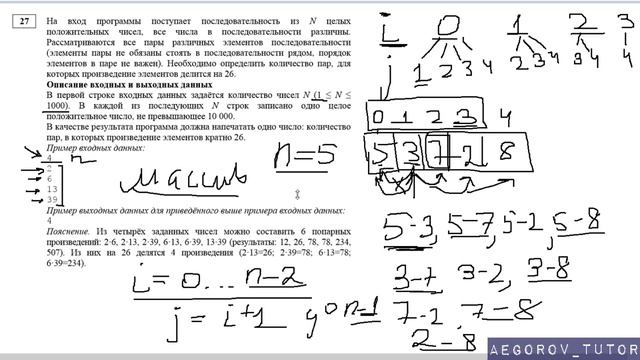 27
На вход программы поступает последовательность из N целых
положительных чисел, все числа в последовательности различны.
Рассматриваются все пары различных элементов последовательности
(элементы пары не обязаны стоять в последовательности рядом, порядок
элементов в паре не важен). Необходимо определить количество пар, для
которых произведение элементов делится на 26.
Описание входных и выходных данных
В первой строке входных данных задаётся количество чисел N (1 ≤ N ≤
1000). В каждой из последующих N строк записано одно целое
положительное число, не превышающее 10 000.
В качестве результата программа должна напечатать одно число: количество
пар, в которых произведение элементов кратно 26.
Пример входных данных:
4
2
6
13
39
Пример выходных данных для приведённого выше примера входных данных:
4
Пояснение. Из четырёх заданных чисел можно составить 6 попарных
произведений: 2·6, 2·13, 2·39, 6·13, 6·39, 13·39 (результаты: 12, 26, 78, 78, 234,
507). Из них на 26 делятся 4 произведения (2·13=26; 2·39=78; 6·13=78;
6·39=234).
n
массив
n=5
i 0 1 2 3
j 1 2 3 4 2 3 4 3 4 4
0 1 2 3 4
5 3 7 2 8
5-3, 5-7, 5-2, 5-8
3-7 3-2, 3-8
7-2 7-8
2-8
i=0...n-2
j=i+1 до n-1
AEGOROV_TUTOR